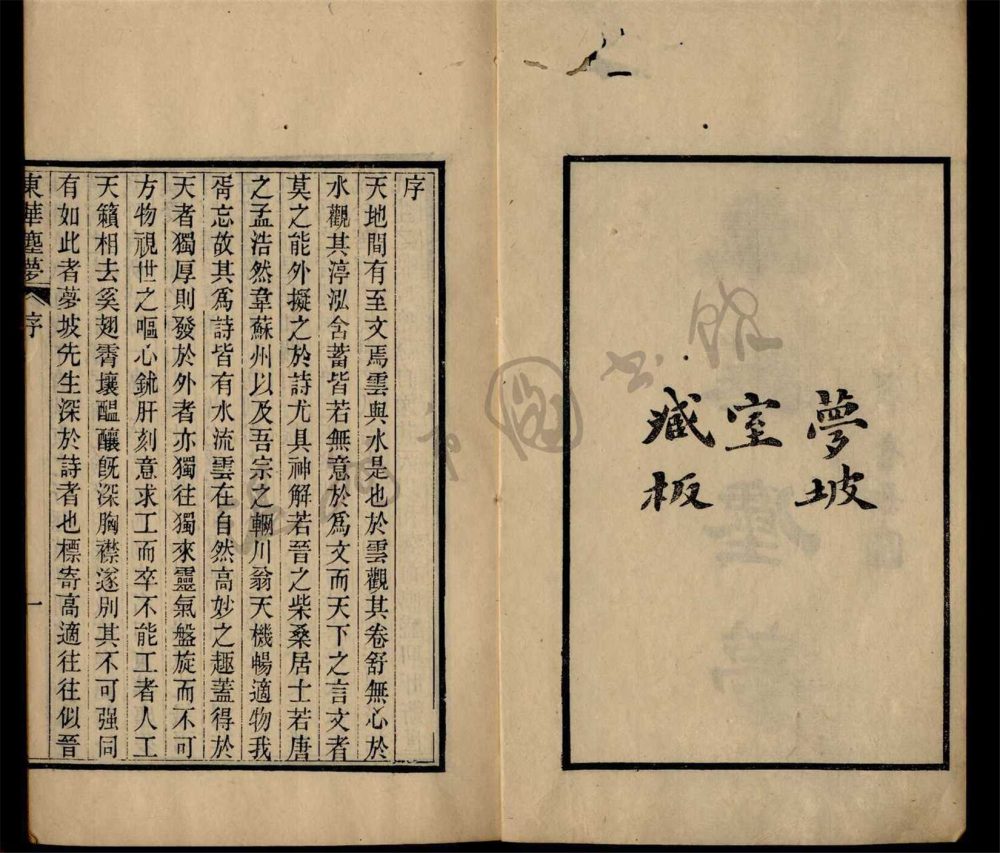 夢坡
室
藏板
序
天地間有至文焉雲與水是也於雲觀其卷舒無心於
水觀其渟泓含蓄皆若無意於爲文而天下之言文者
莫之能外擬之於詩尤具神解若晉之柴桑居士若唐
之孟浩然韋蘇州以及吾宗之輞川翁天機暢適物我
胥忘故其爲詩皆有水流雲在自然高妙之趣蓋得於
天者獨厚則發於外者亦獨往獨來靈氣盤旋而不可
方物視世之嘔心鉥肝刻意求工而卒不能工者人工
天籟相去奚翅霄壤醞釀旣深胸襟遂別其不可强同
有如此者夢坡先生深於詩者也標寄高適往往似晉
東華塵夢 序 一